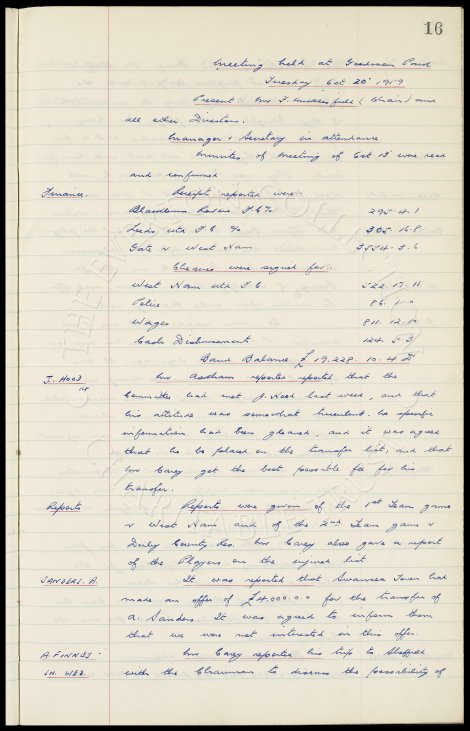 16
Meeting held at Goodison Park
Tuesday Oct 20th 1959
Present:- Mr F. Micklesfield (Chair) and
all other Directors.
Manager & Secretary in attendance.
Minutes of Meeting of Oct 13th were read
and confirmed
Finance. Receipts reported were:
Blackburn Rovers F.C. % 295-4-1
Leeds Utd F.C. % 305-16-8
Gate v West Ham 3554-3-6
Cheques were signed for:
West Ham Utd F.C. 522-17-11
Police 86
Wages 811-12
Cash Disbursement 124-5-3
Bank Balance £19,228-10-4
J. HOOD Mr reported reported that the
Committee had met J. Hood last week, and that
his attitude was somewhat truculent. No specific
information had been gleaned, and it was agreed
that he be placed on the transfer list, and that
Mr Carey get the best possible fee for his
transfer.
Reports Reports were given of the 1st Team game
v West Ham and of the 2nd Team game v
Derby County Res. Mr Carey also gave a report
of the Players on the injured list.
SANDERS. A. It was reported that Swansea Town had
made an offer of £4,000-0-0 for the transfer of
A. Sanders. It was agreed to inform them
that we were not interested in this offer
A. FINNEY Mr Carey reported his trip to Sheffield
SH. WED. with the Chairman to discuss the possibility of
THE EVERTON COLLECTION